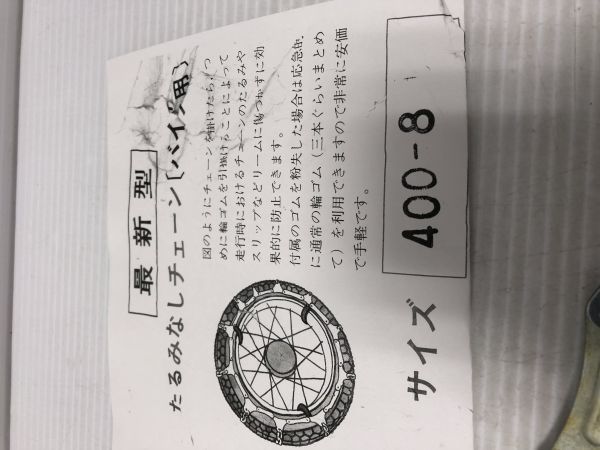 最新型
たるみなしチェーン〔バイク用〕
図のようにチェーンを掛けたら、つ
めに輪ゴムを引掛けることによって
走行時におけるチェーンのたるみや
スリップなどリームに傷つかずに効
果的に防止できます。
付属のゴムを粉失した場合は応急的
に通常の輪ゴム（三本ぐらいまとめ
て）を利用できますので非常に安価
で手軽です。
サイズ 400-8